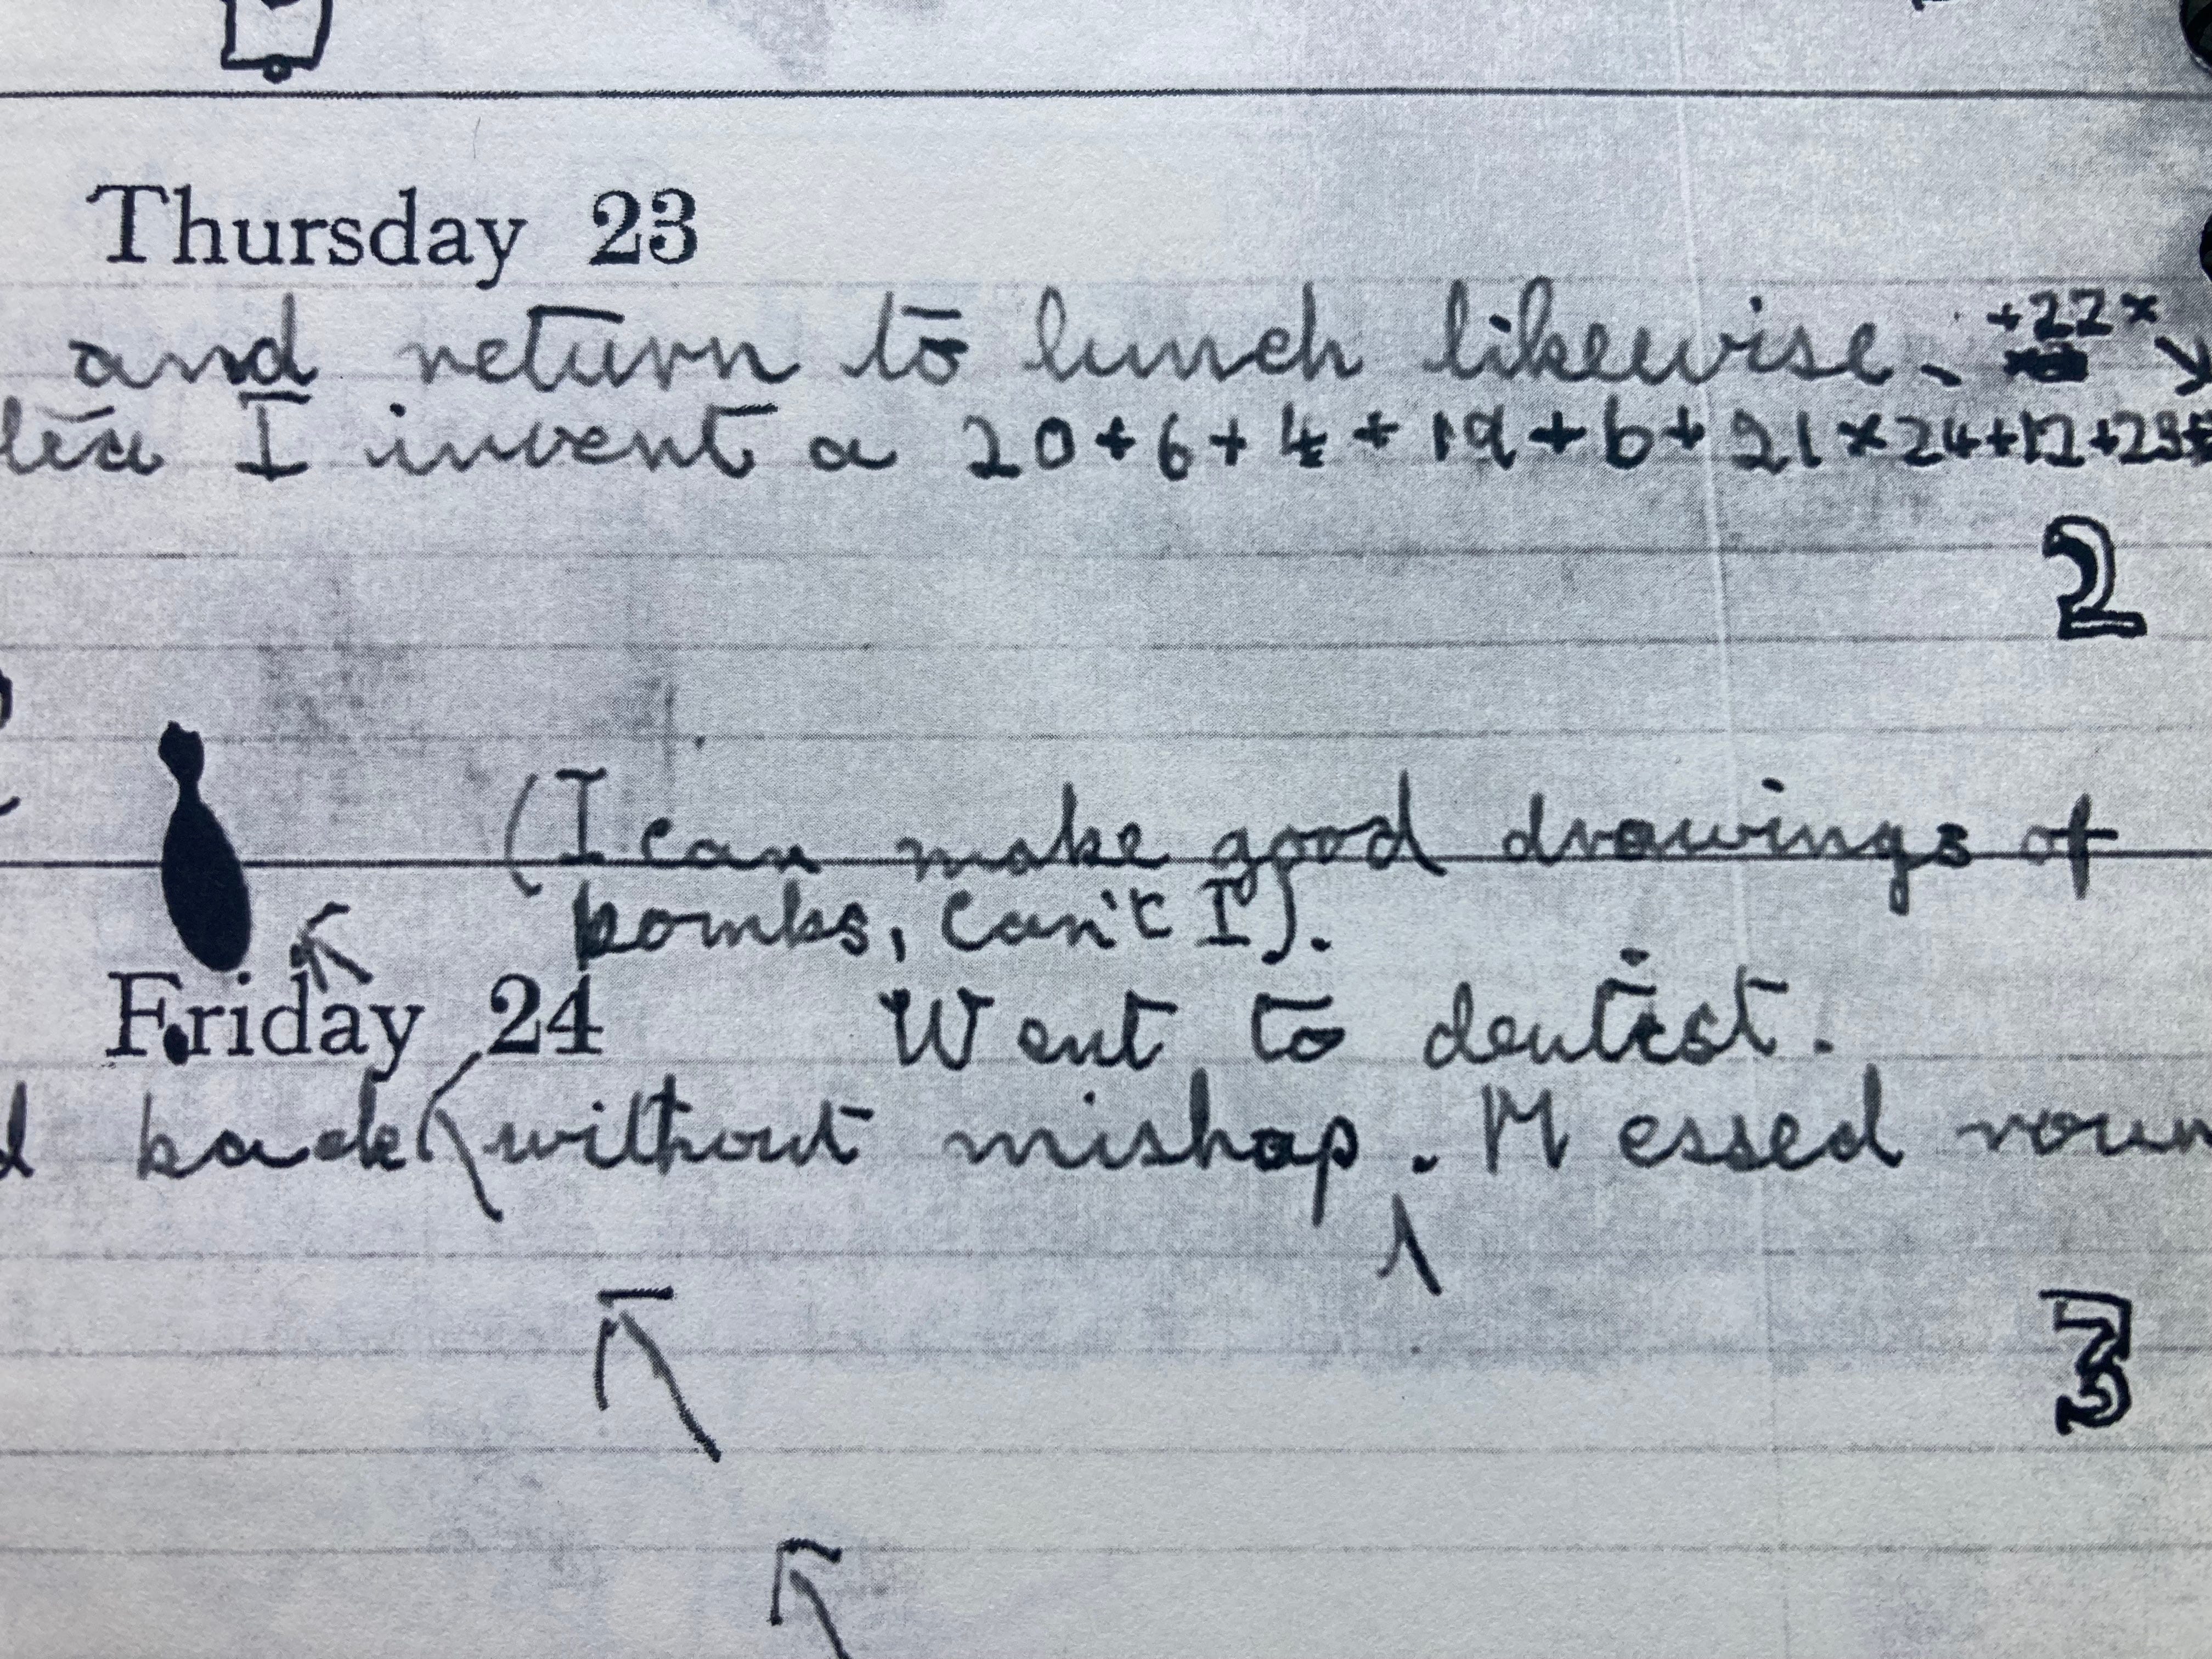 Thursday 23
and return to lunch likewise. +22×
tea I invent a 20+6+4+19+6+21×24+12+23
2
(I can make good drawings of
bombs, can't I).
Friday 24 Went to dentist.
back without mishap. Messed roun
3